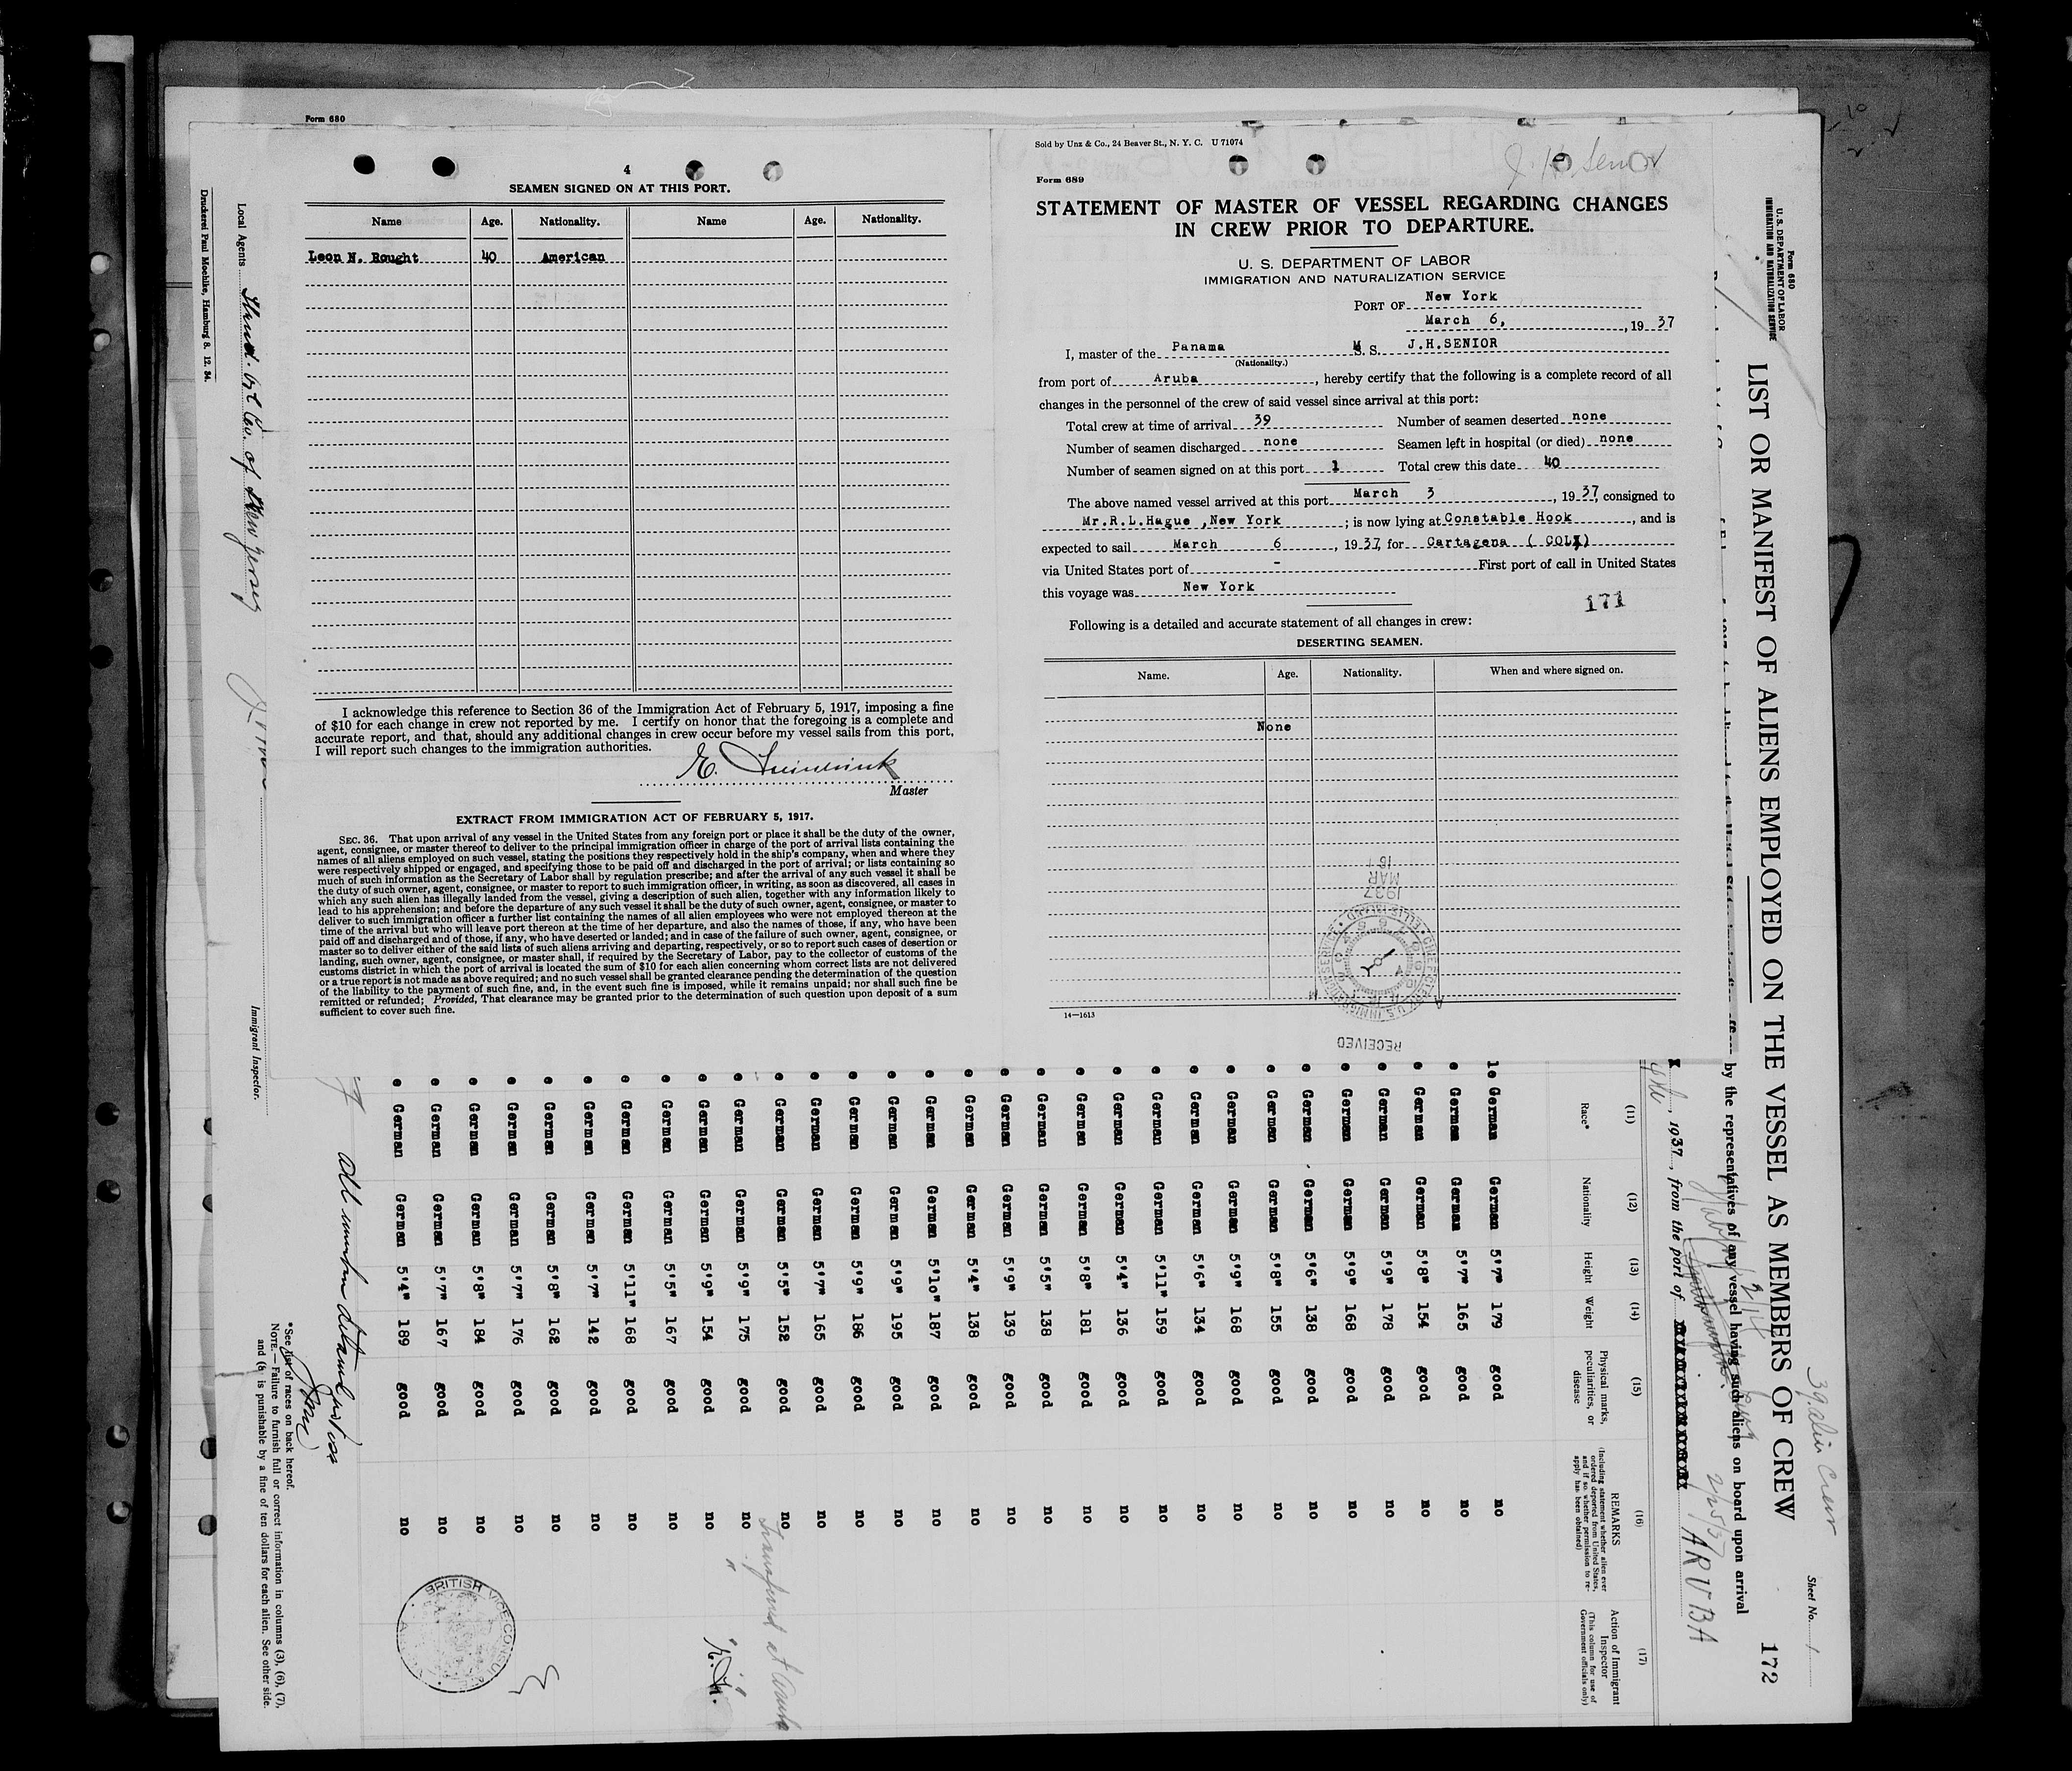 Form 680
4
SEAMEN SIGNED ON AT THIS PORT.
Name Age. Nationality. Name Age. Nationality.
Leon N. Rought 40 American
I acknowledge this reference to Section 36 of the Immigration Act of February 5, 1917, imposing a fine
of $10 for each change in crew not reported by me. I certify on honor that the foregoing is a complete and
accurate report, and that, should any additional changes in crew occur before my vessel sails from this port,
I will report such changes to the immigration authorities.
E.
Master
EXTRACT FROM IMMIGRATION ACT OF FEBRUARY 5, 1917.
SEC. 36. That upon arrival of any vessel in the United States from any foreign port or place it shall be the duty of the owner,
agent, consignee, or master thereof to deliver to the principal immigration officer in charge of the port of arrival lists containing the
names of all aliens employed on such vessel, stating the positions they respectively hold in the ship's company, when and where they
were respectively shipped or engaged, and specifying those to be paid off and discharged in the port of arrival; or lists containing so
much of such information as the Secretary of Labor shall by regulation prescribe; and after the arrival of any such vessel it shall be
the duty of such owner, agent, consignee, or master to report to such immigration officer, in writing, as soon as discovered, all cases in
which any such alien has illegally landed from the vessel, giving a description of such alien, together with any information likely to
lead to his apprehension; and before the departure of any such vessel it shall be the duty of such owner, agent, consignee, or master to
deliver to such immigration officer a further list containing the names of all alien employees who were not employed thereon at the
time of the arrival but who will leave port thereon at the time of her departure, and also the names of those, if any, who have been
paid off and discharged and of those, if any, who have deserted or landed; and in case of the failure of such owner, agent, consignee, or
master so to deliver either of the said lists of such aliens arriving and departing, respectively, or so to report such cases of desertion or
landing, such owner, agent, consignee, or master shall, if required by the Secretary of Labor, pay to the collector of customs of the
customs district in which the port of arrival is located the sum of $10 for each alien concerning whom correct lists are not delivered
or a true report is not made as above required; and no such vessel shall be granted clearance pending the determination of the question
of the liability to the payment of such fine, and, in the event such fine is imposed, while it remains unpaid; nor shall such fine be
remitted or refunded; Provided, That clearance may be granted prior to the determination of such question upon deposit of a sum
sufficient to cover such fine.
Sold by Unz & Co., 24 Beaver St., N. Y. C. U 71074
J. H. Senior
Form 689
STATEMENT OF MASTER OF VESSEL REGARDING CHANGES
IN CREW PRIOR TO DEPARTURE.
U. S. DEPARTMENT OF LABOR
IMMIGRATION AND NATURALIZATION SERVICE
PORT OF New York
March 6, , 19 37
I, master of the Panama M.S. J.H.SENIOR
(Nationality.)
from port of Aruba , hereby certify that the following is a complete record of all
changes in the personnel of the crew of said vessel since arrival at this port:
Total crew at time of arrival 39 Number of seamen deserted none
Number of seamen discharged none Seamen left in hospital (or died) none
Number of seamen signed on at this port 1 Total crew this date 40
The above named vessel arrived at this port March 3 , 19 37, consigned to
Mr.R.L.Hague ,New York ; is now lying at Constable Hook , and is
expected to sail March 6 , 19 37, for Cartagena ( COL.)
via United States port of - First port of call in United States
this voyage was New York
171
Following is a detailed and accurate statement of all changes in crew:
DESERTING SEAMEN.
Name. Age. Nationality. When and where signed on.
None
1937
MAR
16
14—1613
RECEIVED
Form 680
U. S. DEPARTMENT OF LABOR
IMMIGRATION AND NATURALIZATION SERVICE
Sheet No. 1
39 alien Crew
LIST OR MANIFEST OF ALIENS EMPLOYED ON THE VESSEL AS MEMBERS OF CREW 172
by the representatives of any vessel having such aliens on board upon arrival
, 1937, from the port of ARUBA
2/25/37
(11) (12) (13) (14) (15) (16) (17)
Race* Nationality Height Weight Physical marks, peculiarities, or disease REMARKS (Including statement whether alien ever ordered deported from United States, and if so, whether permission to reapply has been obtained) Action of Immigrant Inspector (This column for use of Government officials only)
le German German 5'7" 179 good no
e German German 5'7" 165 good no
e German German 5'8" 154 good no
e German German 5'9" 178 good no
e German German 5'9" 168 good no
e German German 5'6" 138 good no
e German German 5'8" 155 good no
e German German 5'9" 168 good no
e German German 5'6" 134 good no
e German German 5'11" 159 good no
e German German 5'4" 136 good no
e German German 5'8" 181 good no
e German German 5'5" 138 good no
e German German 5'9" 139 good no
e German German 5'4" 138 good no
e German German 5'10" 187 good no
e German German 5'9" 195 good no
e German German 5'9" 186 good no
e German German 5'7" 165 good no
e German German 5'5" 152 good no Transferred at Aruba
e German German 5'9" 175 good no
e German German 5'9" 154 good no
e German German 5'5" 167 good no
e German German 5'11" 168 good no
e German German 5'7" 142 good no
e German German 5'8" 162 good no
e German German 5'7" 176 good no
e German German 5'8" 184 good no
e German German 5'7" 167 good no
e German German 5'4" 189 good no
BRITISH VICE-CONSUL
*See list of races on back hereof.
NOTE.—Failure to furnish full or correct information in columns (3), (6), (7),
and (8 is punishable by a fine of ten dollars for each alien. See other side.
Immigrant Inspector.
Local Agents Stand. Oil Co. of New Jersey
Druckerei Paul Moehlke, Hamburg 8. 12. 34.